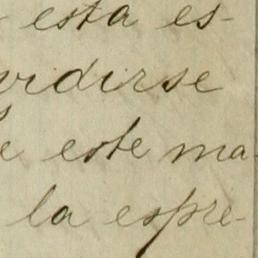 esta es-
vidirse
e este ma-
la espre-